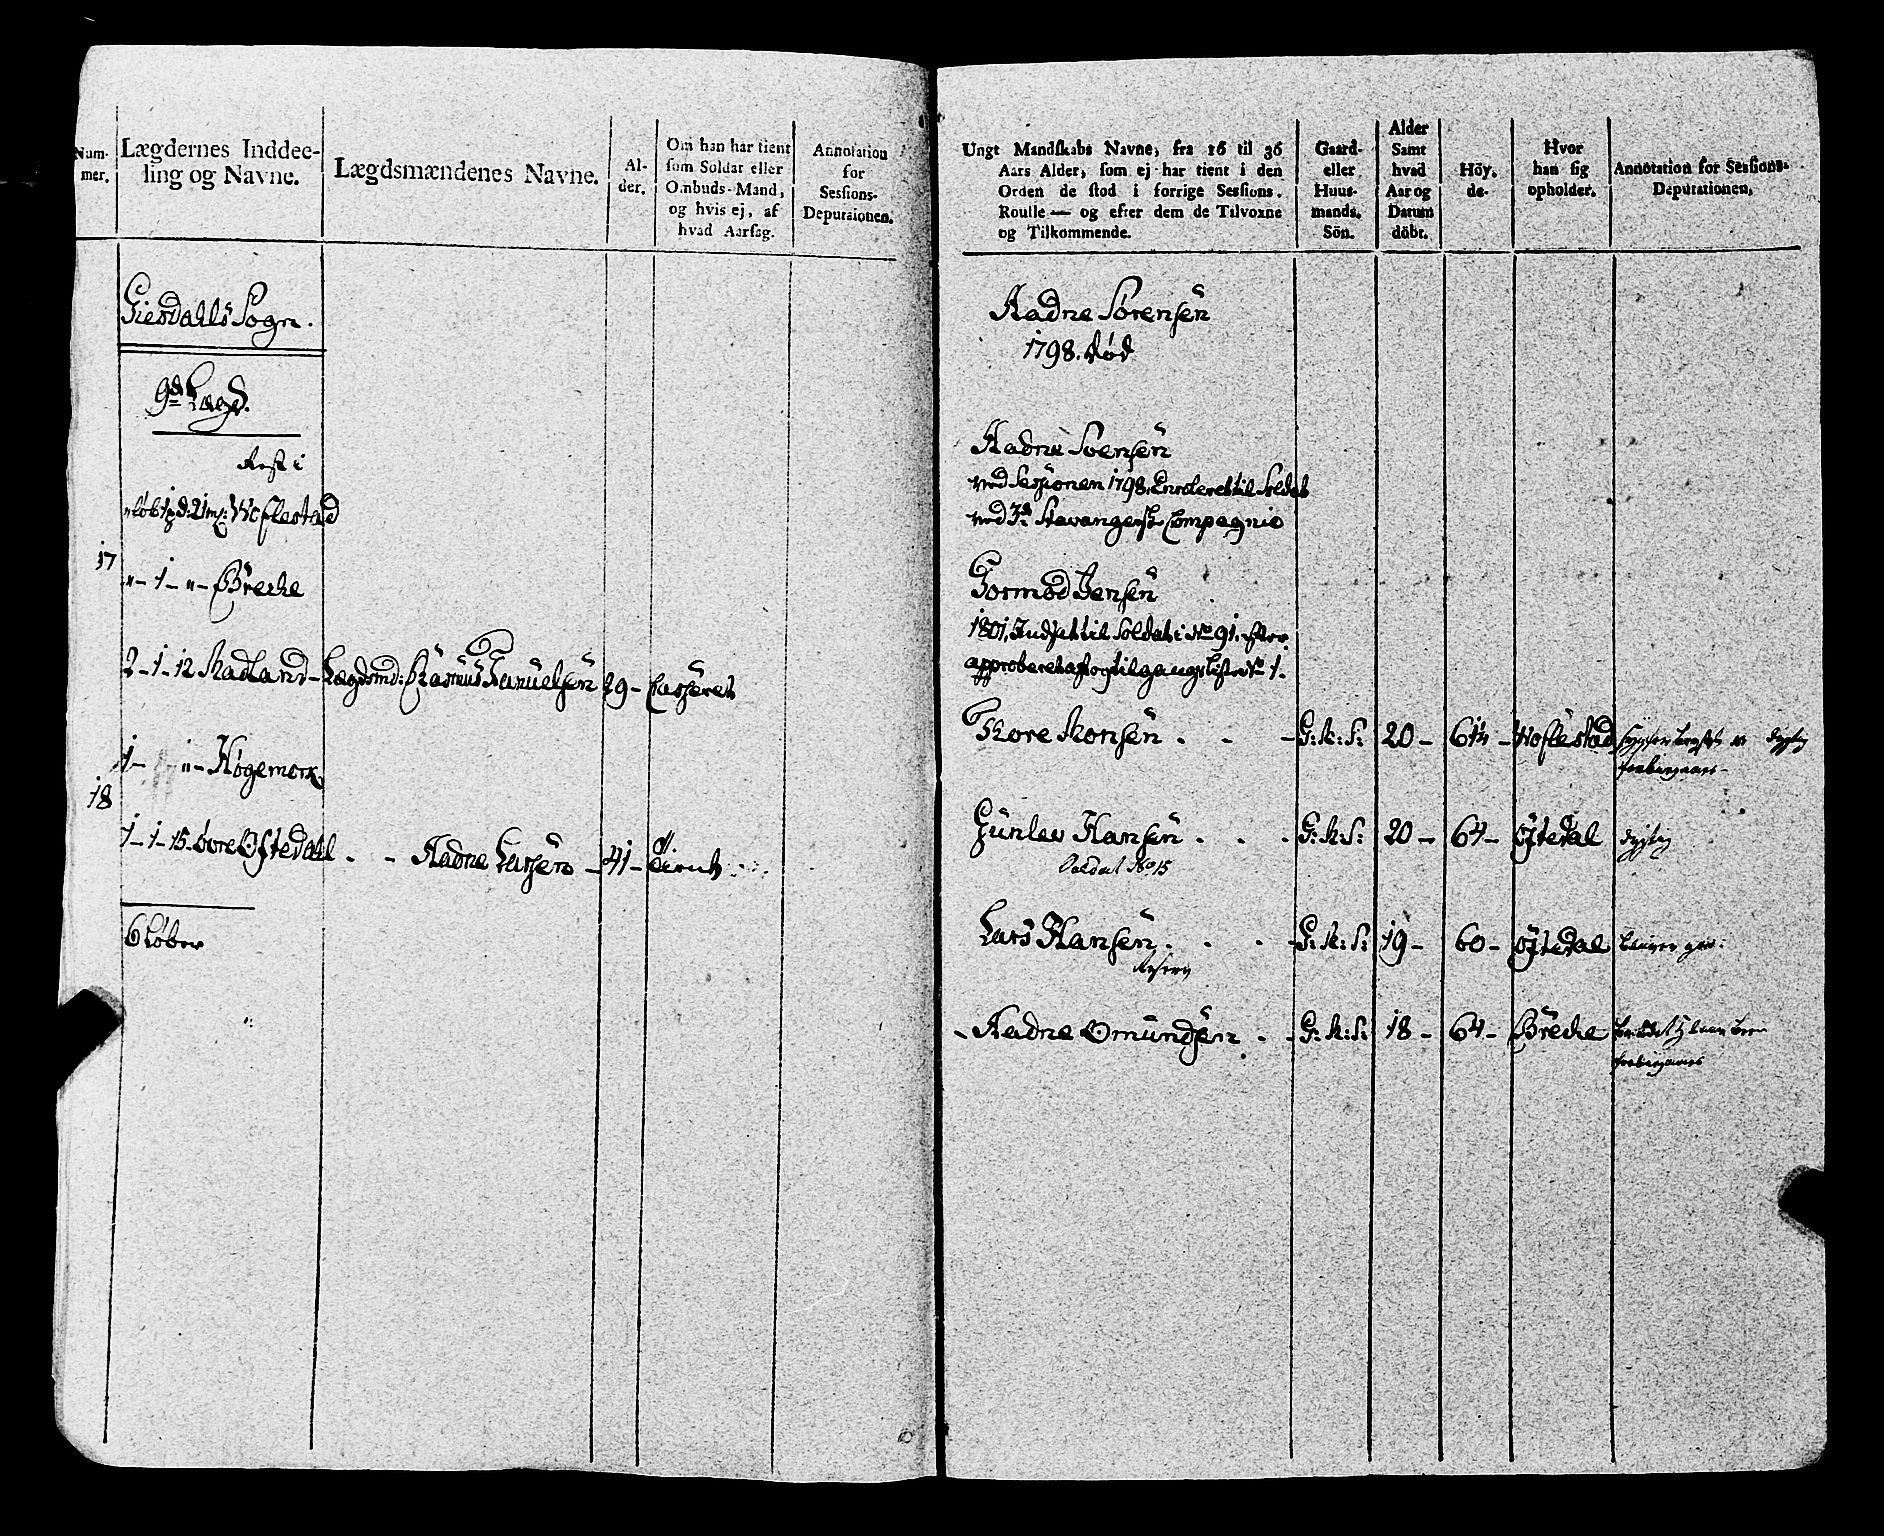 Num-
mer.
Lægdernes Inddee-
ling og Navne.
Lægdsmændenes Navne.
Al-
der.
Om han har tient
som Soldat eller
Ombuds-Mand,
og hvis ej, af
hvad Aarsag.
Annotation
for
Sessions-
Deputationen.
Giesdahls Sogn.
9de Lægd.
Rest i
17
"- 1- "- Brecke
2-1-12 Madland- Lægdsmd: Rasmus Samuelsen 29- Casseret
1- "- Høgemork
18
1-1-15. øvre Østedahl - - Aadne Larsen - 41- tient
6 Løber
Ungt Mandskabs Navne, fra 16 til 36
Aars Alder, som ej har tient i den
Orden de stod i forrige Sessions-
Roulle — og efter dem de Tilvoxne
og Tilkommende.
Gaard-
eller
Huus-
mands.
Sön.
Alder
Samt
hvad
Aar og
Datum
döbt.
Höy-
de.
Hvor
han sig
opholder.
Annotation for Sessions-
Deputationen.
Aadne Sørensen
1798. død
Aadne Soensen
ved Sessionen 1798. Enrolleret til Soldat
ved 3de Stavangerske Compagnie
Gormod Jensen
1801. Indsat til Soldat i No 91. efter
approberet afgangs
Thore Monsen . - - G: M: S: 20- 61¼- Woflestad
Gunlev Hansen . . . G: M: S: 20- 64- Østedal dygtig
Soldat No 15
Lars Hansen . . . G: M: S: 19- 60- Østedal
Reserv
- Aadne Omundsen - - G: M: S: 18- 64- Brecke
forbigaaes